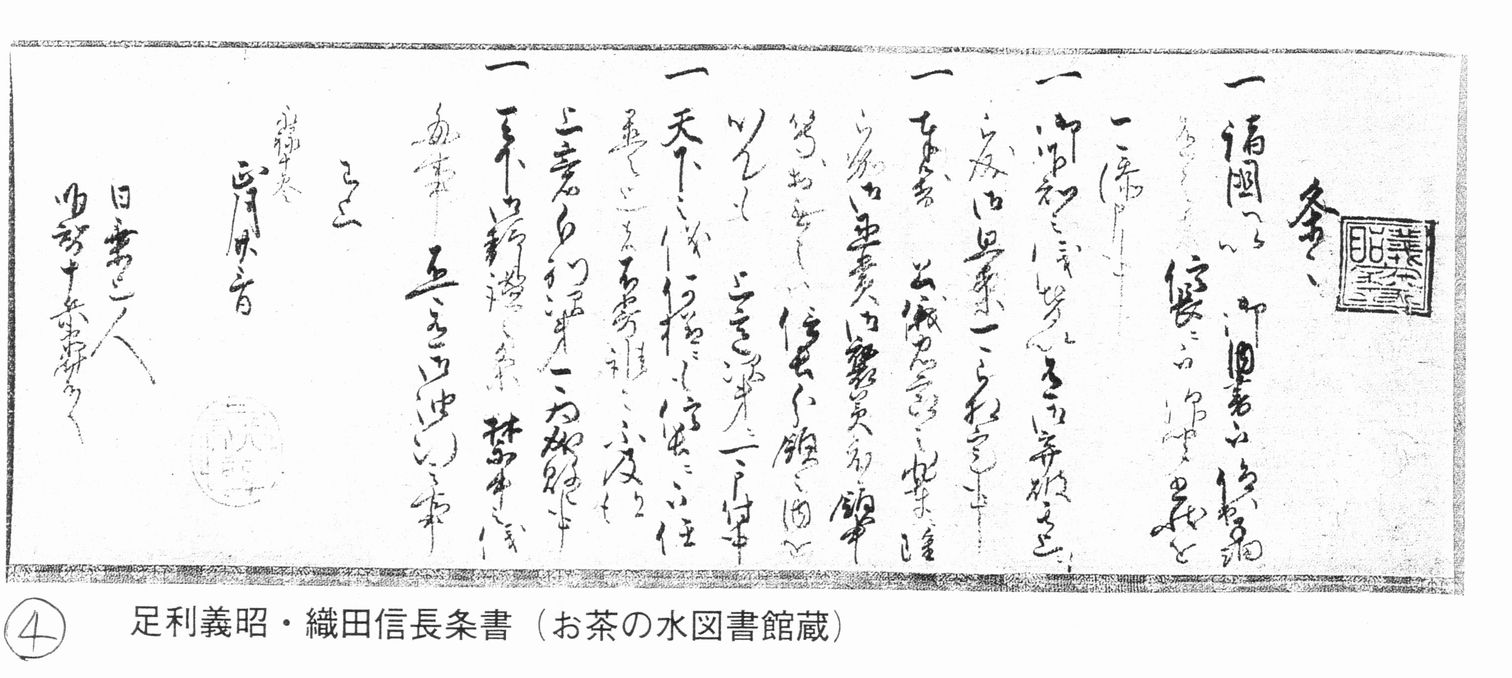 条々
一 諸国へ以 御内書被仰出子細
有之者 信長ニ被仰聞書状を
可添申事
一 御下知之儀皆以有御棄破其上
被成御思案可被相定事
一 奉対 公儀忠節之輩ニ雖
被加御恩賞御褒美度候領中
等於無之ハ信長分領之内を
以ても 上意次第ニ可申付事
一 天下之儀何様ニも信長ニ被任
置之上者不寄誰々ニ不及得
上意分別次第可為成敗事
一 天下御静謐之条禁中之儀
毎事不可有御油断之事
已上
永禄十参
正月廿三日
日乗上人
明智十兵衛尉殿
④ 足利義昭・織田信長条書（お茶の水図書館蔵）